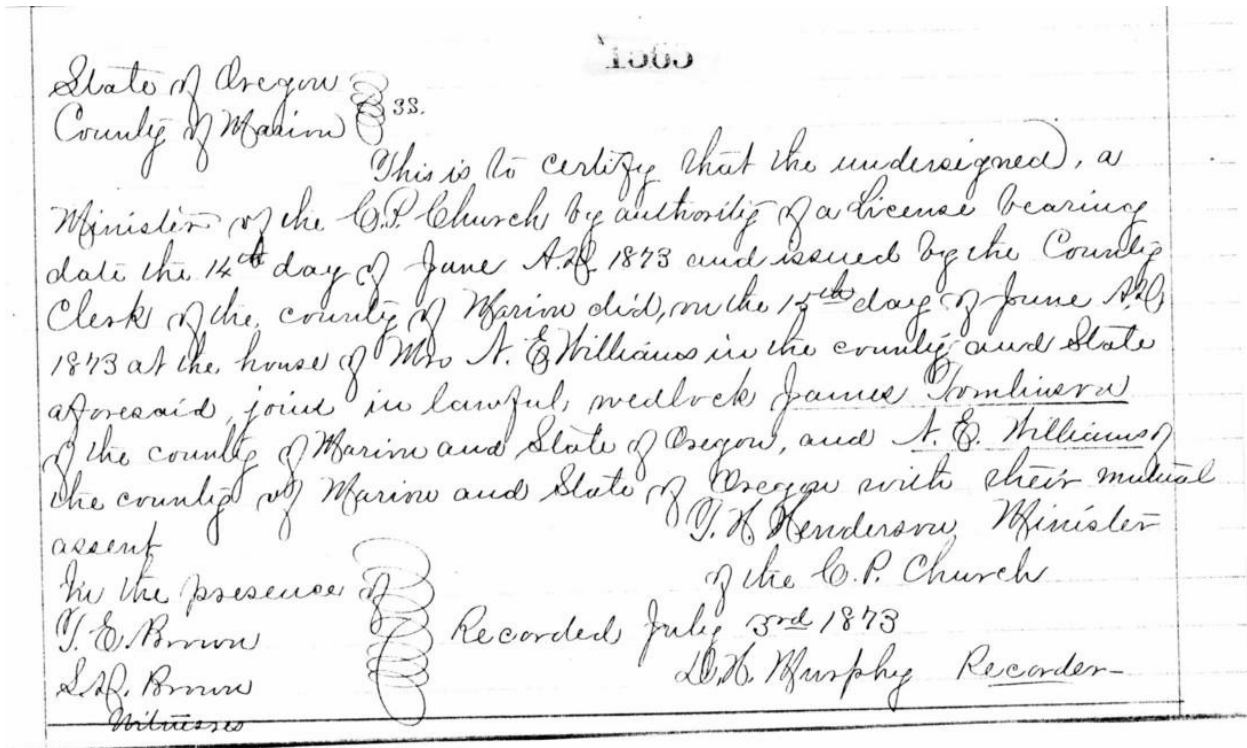 State of Oregon
County of Marion } SS.
This is to certify that the undersigned, a
Minister of the C.P. Church by authority of a License bearing
date the 14th day of June A.D. 1873 and issued by the County
Clerk of the county of Marion did, on the 15th day of June A.D.
1873 at the house of Mrs N. E. Williams in the county and State
aforesaid, joint in lawful, wedlock James Tomlinson
of the county of Marion and State of Oregon, and N. E. Williams of
the county of Marion and State of Oregon with their mutual
assent
T. H. Henderson Minister
of the C.P. Church
In the presence of
T. E. Brown
S. D. Brown
Witnesses
Recorded July 3rd 1873
D. H. Murphy Recorder